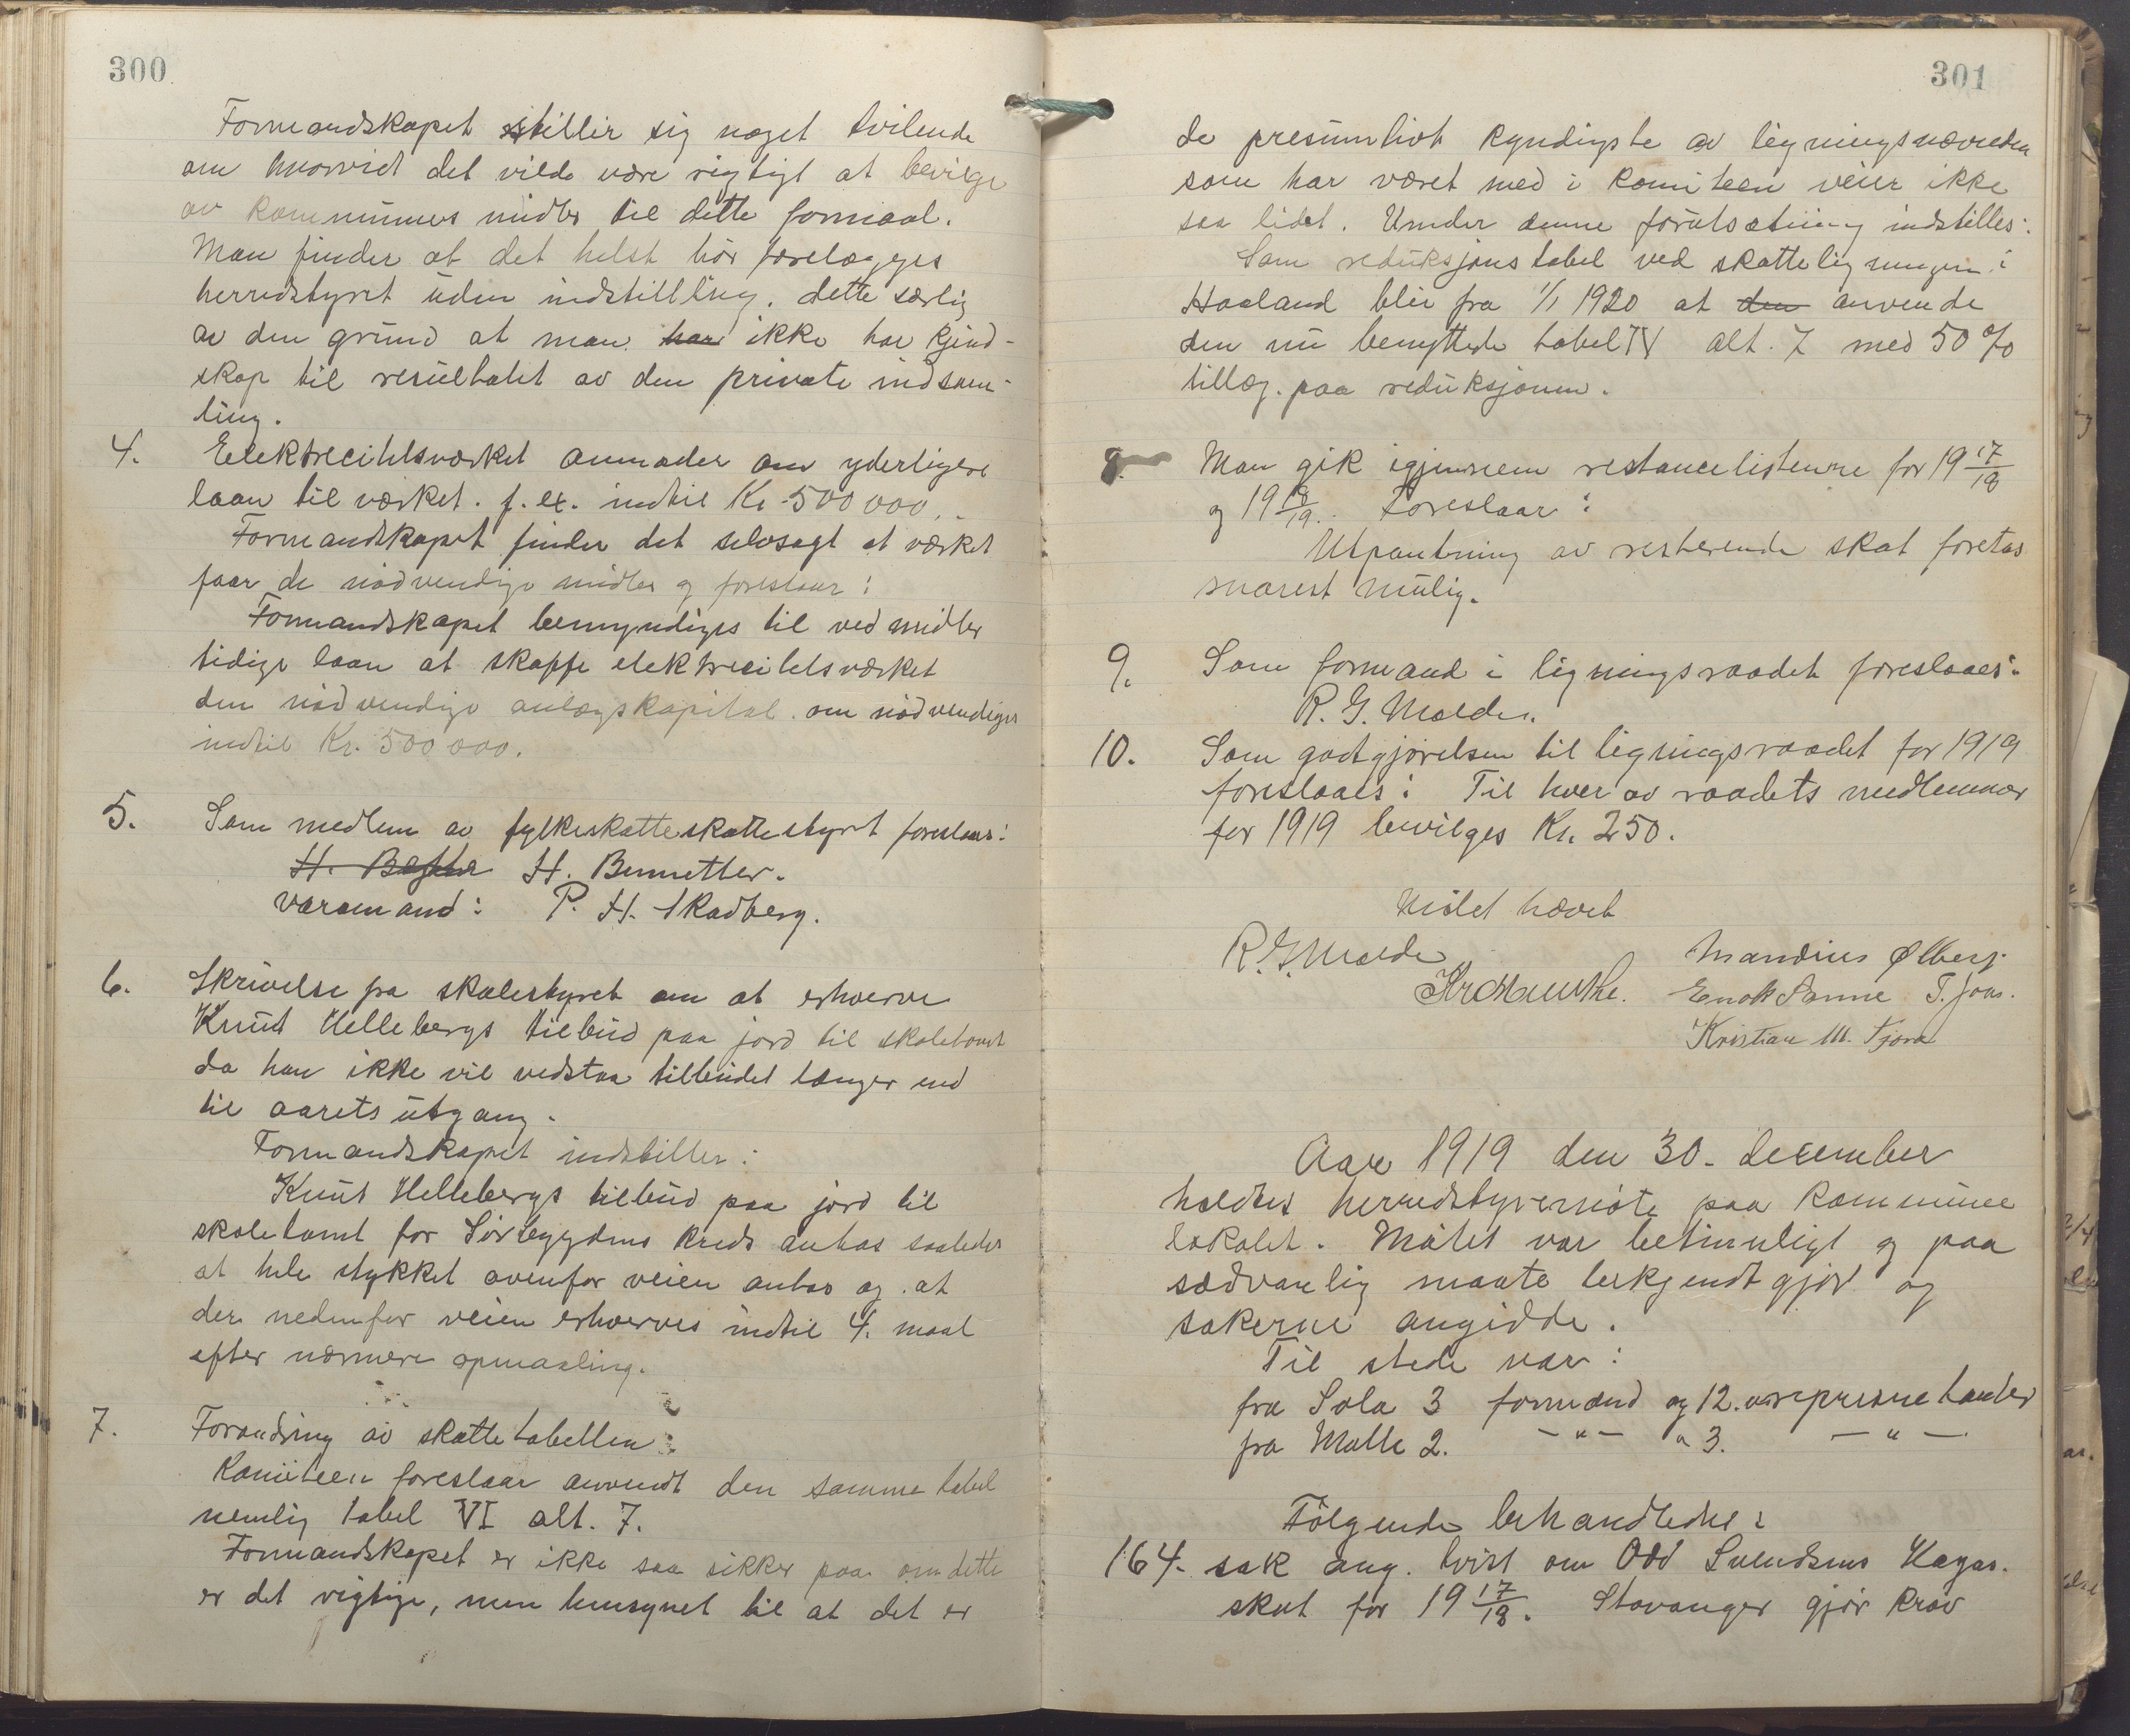 300
Formandskapet stiller sig noget tvilende
om hvorvidt det vilde være rigtigt at bevilge
av kommunens midler til dette formaal.
Man finder at det helst bör forelægges
herredstyret uden indstilling. dette særlig
av den grund at man har ikke har kjend-
skap til resultatet av den private indsam-
ling.
4. Elektrecitetsværket anmoder om yderligere
laan til værket. f. ex. indtil Kr 500 000,
Formandskapet finder det selvsagt at værket
faar de nödvendige midler og foreslaar:
Formandskapet bemyndiges til ved midler
tidige laan at skaffe elektrecitetsværket
den nödvendige anlægskapital. om nödvendiges
indtil Kr. 500 000.
5. Som medlem av fylkeskatteskattestyret foreslaaes:
H. H. Bennetter.
varamand: P. H. Skadberg.
6. Skrivelse fra skolestyret om at erhverve
Knut Hellebergs tilbud paa jord til skoletomt
da han ikke vil vedstaa tilbudet længer end
til aarets utgang.
Formandskapet indstiller:
Knut Hellebergs tilbud paa jord til
skoletomt for Sörbygdens kreds antas saaledes
at hele stykket ovenfor veien antas og at
der nedenfor veien erhverves indtil 4. maal
efter nærmere opmaaling.
7. Forandring av skattetabellen.
Komiteen foreslaar anvendt den samme tabel
nemlig tabel VI alt. 7.
Formandskapet er ikke saa sikker paa om dette
er det rigtige, men hensynet til at det er
301
de presumtivt kyndigste av ligningsnævnden
som har været med i komiteen veier ikke
saa lidet. Under denne forutsætning indstilles:
Som reduksjonstabel ved skatteligningen i
Haaland blir fra 1/1 1920 at den anvende
den nu benyttede tabel IV alt. 7 med 50 %
tillæg. paa reduksjonen.
8. Man gik igjennem restancelisterne for 19 17/18
og 19 18/19. Foreslaar:
Utpantning av resterende skat foretas
snarest mulig.
9. Som formand i ligningsraadet foreslaaes:
R. G. Molde.
10. Som godtgjörelsen til ligningsraadet for 1919
foreslaaes: Til hver av raadets medlemmer
for 1919 bevilges Kr. 250.
Mötet hævet
R. G. Molde Mandius Ølberg.
Enok Sønne T. Joas.
Kristian M. Tjora
Aar 1919 den 30. december
holdtes herredstyremöte paa kommune
lokalet. Mötet var betimeligt og paa
sædvanlig maate bekjendtgjör og
sakerne angidde.
Til stede var:
fra Sola 3 formænd og 12. represnetanter
fra Malle 2. – " – " 3. – " –
Fölgende behandledes:
164. sak ang. tvist om Odd Svendsens Hagas.
skat for 19 17/18. Stavanger gjör krav